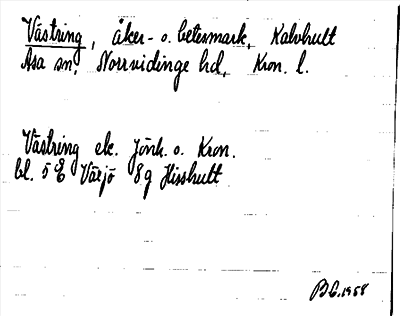 Västring, åker- o. betesmark, Kalvhult
Asa sn, Norrvidinge hd, Kron. l.
Västring ek. Jönk. o. Kron.
bl. 5 E Värjö 8g Hisshult
BG.1958